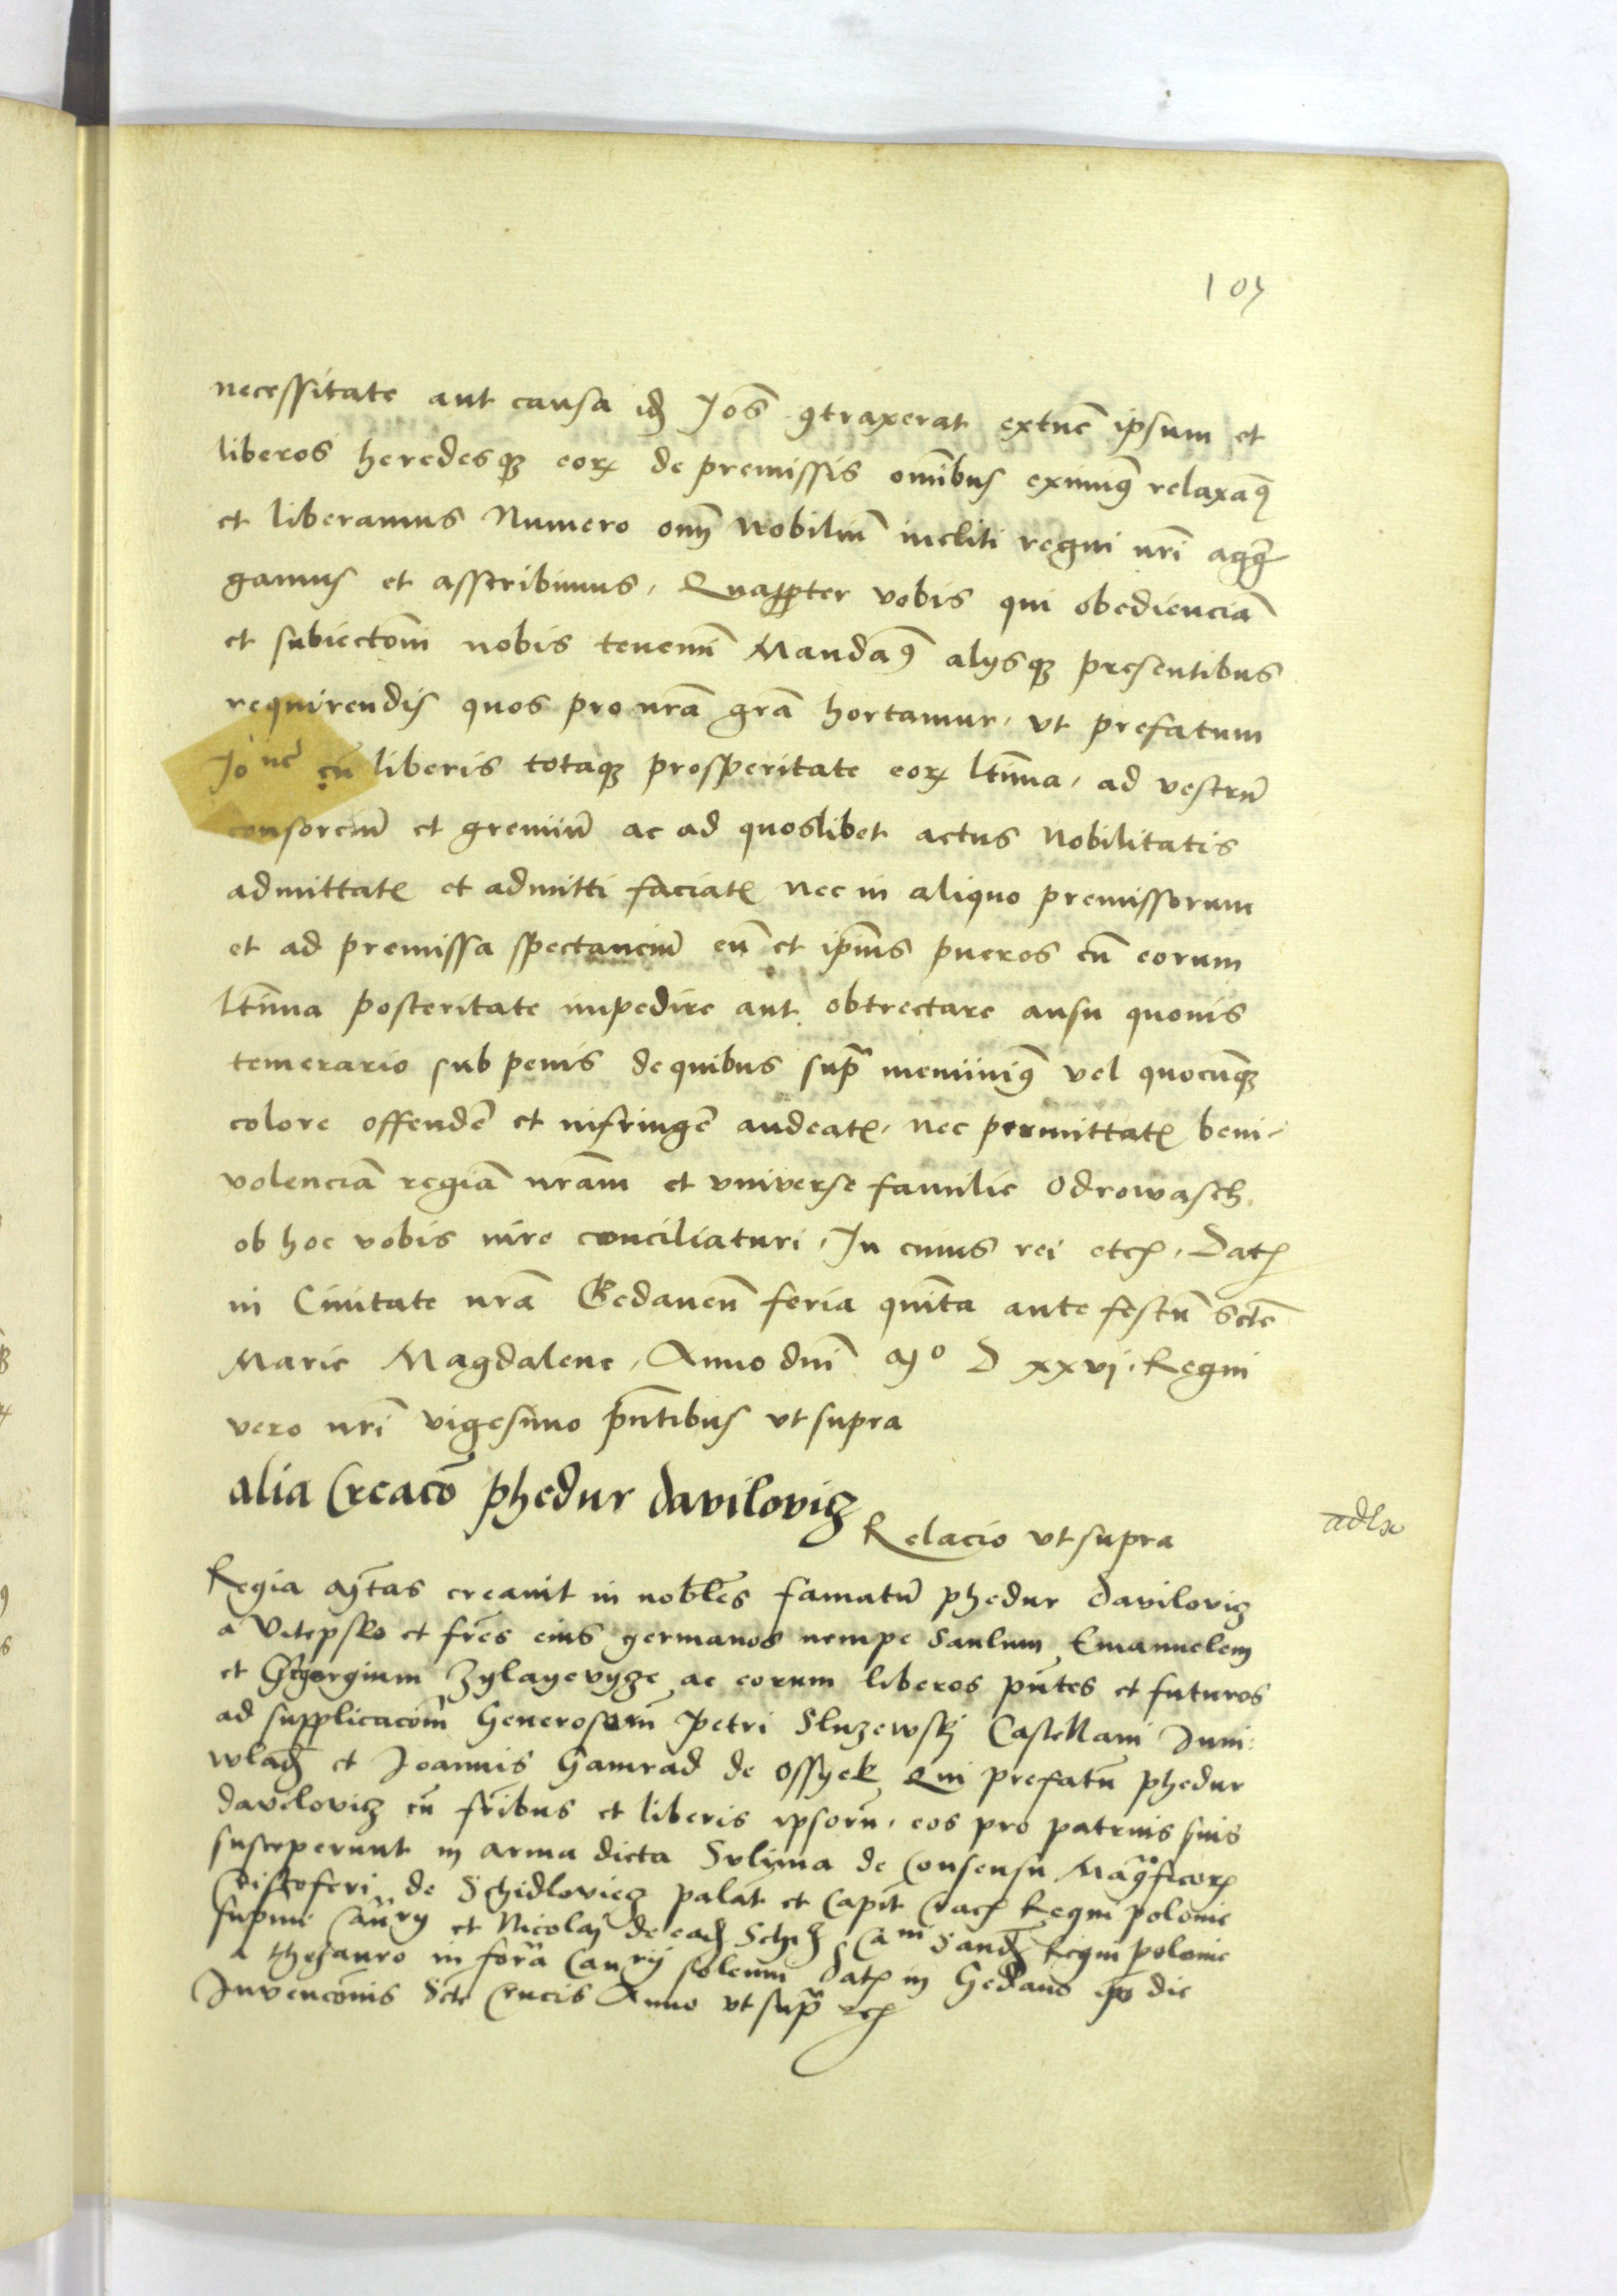 107
necessitate aut causa idē Joēs ꝯtraxerat extūc ipsum et
liberos heredesqꝫ eorꝝ de premissis omībus eximiꝰ relaxaꝰ
et liberamus Numero omī Nobiliū incliti regni nr̄i aggre
gamus et asscribimus, Quapp̱ter vobis qui obedienciā
et subiectōm nobis tenemī Mandaꝰ alysqꝫ presentibus
requirendis quos pro nr̄a gr̄a hortamur, vt prefatum
Jo nē cū liberis totaqꝫ prosperitate eorꝝ ltīma, ad vestrū
consorciū et gremiū ac ad quoslibet actus Nobilitatis
admittatꝭ et admitti faciatꝭ nec in aliquo premissorum
et ad premissa spectanciū eū et ipīus pueros cū eorum
ltīma posteritate impedire aut obtrectare ausu quouis
temerario sub penis de quibus supᵃ meminiꝰ vel quocūqꝫ
colore offendē et infringē audeatꝭ, nec permittatꝭ beni-
volenciā regiā nr̄am et vniverse familie Odrowasch
ob hoc vobis iure conciliaturi, In cuius rei etcꝭ, Datꝭ
in Ciuitate nr̄a Gedanen̄ feria quīta ante festū Scte
Marie Magdalene, Anno dnī Mº D xxvj, Regni
vero nr̄i vigesimo pn̄tibus vt supra
alia Creacō phedur davilovicz
Relacio vt supra
adlx
Regia Mtas creauit in nobles famatū phedur davilovicz
a Vitepsko et frēs eius germanos nempe Saulum Emanuelem
et Georgium Zylayevyze ac eorum liberos pn̄tes et futuros
ad supplicacōm Generosorū Petri Sluzewskj Castellani Juni
wladꝭ et Joannis Gamrad de Ossyek Qui prefatū phedur
davilovicz cū frībus et liberis ipsorū, eos pro patruis suis
susceperunt in arma dicta Sulima de Consensu Magᶜficorꝝ
Cristoferi de Schidloviecz palat et Capit Cracꝭ Regni polonie
supmi Can̄ry et Nicolaj de eadꝫ Schiꝫ Cani Sandꝫ Regni polonie
a thezauro in forᵃ Can̄rij solenni Datꝭ in Gedano ipō die
Invencōnis Scte Crucis Anno vt supᵃ etcꝭ